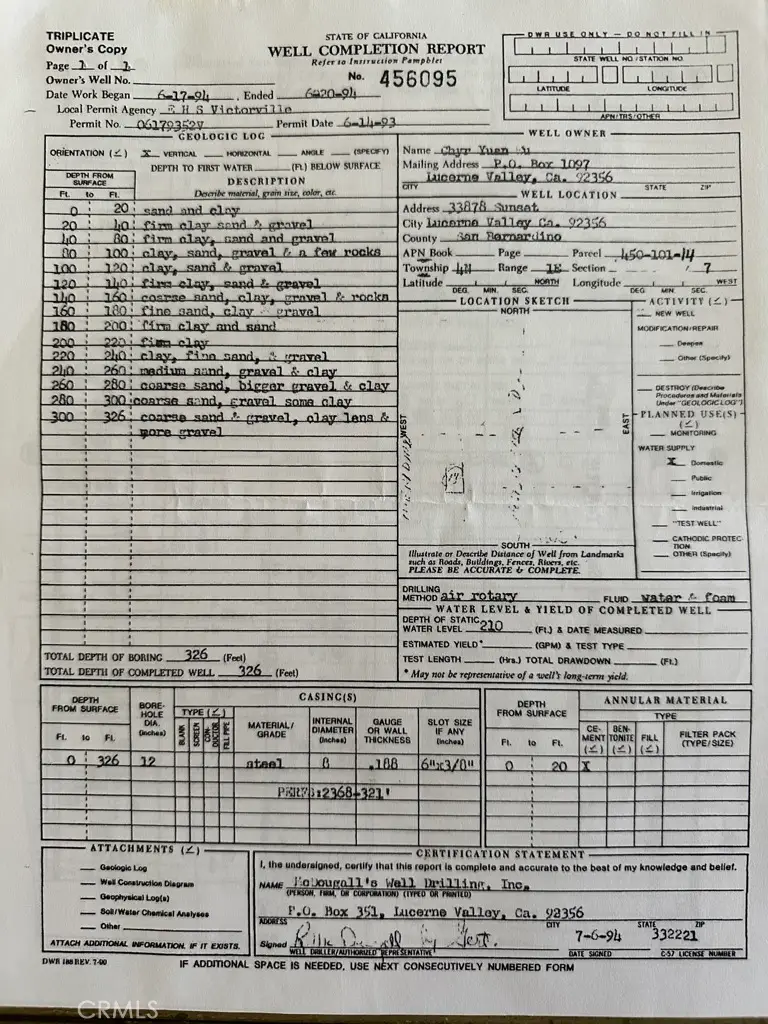 TRIPLICATE
Owner's Copy
STATE OF CALIFORNIA
WELL COMPLETION REPORT
Refer to Instruction Pamphlet
DWR USE ONLY — DO NOT FILL IN
STATE WELL NO./STATION NO.
LATITUDE LONGITUDE
APN/TRS/OTHER
Page 1 of 1
No. 456095
Owner's Well No.
Date Work Began 6-17-94 , Ended 6-20-94
Local Permit Agency E H S Victorville
Permit No. Permit Date 6-14-93
GEOLOGIC LOG
ORIENTATION (✓) X VERTICAL HORIZONTAL ANGLE (SPECIFY)
DEPTH FROM SURFACE DEPTH TO FIRST WATER (Ft.) BELOW SURFACE
DESCRIPTION
Ft. to Ft. Describe material, grain size, color, etc.
0 20 sand and clay
20 40 firm clay sand & gravel
40 80 firm clay, sand and gravel
80 100 clay, sand, gravel & a few rocks
100 120 clay, sand & gravel
120 140 firm clay, sand & gravel
140 160 coarse sand, clay, gravel & rocks
160 180 fine sand, clay gravel
180 200 firm clay and sand
200 220 firm clay
220 240 clay, fine sand, & gravel
240 260 medium sand, gravel & clay
260 280 coarse sand, bigger gravel & clay
280 300 coarse sand, gravel some clay
300 326 coarse sand & gravel, clay lens &
more gravel
TOTAL DEPTH OF BORING 326 (Feet)
TOTAL DEPTH OF COMPLETED WELL 326 (Feet)
WELL OWNER
Name Chyr Yuan
Mailing Address P.O. Box 1097
Lucerne Valley, Ca. 92356
CITY STATE ZIP
WELL LOCATION
Address 33878 Sunset
City Lucerne Valley Ca. 92356
County San Bernardino
APN Book Page Parcel 450-101-14
Township 4N Range 1E Section 7
Latitude NORTH Longitude WEST
DEG. MIN. SEC. DEG. MIN. SEC.
LOCATION SKETCH
NORTH
WEST
EAST
SOUTH
Illustrate or Describe Distance of Well from Landmarks
such as Roads, Buildings, Fences, Rivers, etc.
PLEASE BE ACCURATE & COMPLETE.
ACTIVITY (✓)
NEW WELL
MODIFICATION/REPAIR
Deepen
Other (Specify)
DESTROY (Describe
Procedures and Materials
Under "GEOLOGIC LOG")
PLANNED USE(S)
(✓)
MONITORING
WATER SUPPLY
X Domestic
Public
Irrigation
Industrial
"TEST WELL"
CATHODIC PROTEC-
TION
OTHER (Specify)
DRILLING
METHOD air rotary FLUID water & foam
WATER LEVEL & YIELD OF COMPLETED WELL
DEPTH OF STATIC
WATER LEVEL 210 (Ft.) & DATE MEASURED
ESTIMATED YIELD* (GPM) & TEST TYPE
TEST LENGTH (Hrs.) TOTAL DRAWDOWN (Ft.)
* May not be representative of a well's long-term yield.
DEPTH FROM SURFACE
BORE-HOLE DIA. (Inches)
CASING(S)
TYPE (✓)
BLANK SCREEN CON-DUCTOR FILL PIPE
MATERIAL/GRADE
INTERNAL DIAMETER (Inches)
GAUGE OR WALL THICKNESS
SLOT SIZE IF ANY (Inches)
Ft. to Ft.
0 326 12 steel 8 .188 6"x3/8"
PERFS:2368-321'
DEPTH FROM SURFACE
ANNULAR MATERIAL
TYPE
CE-MENT (✓) BEN-TONITE (✓) FILL (✓) FILTER PACK (TYPE/SIZE)
Ft. to Ft.
0 20 X
ATTACHMENTS (✓)
Geologic Log
Well Construction Diagram
Geophysical Log(s)
Soil/Water Chemical Analyses
Other
ATTACH ADDITIONAL INFORMATION, IF IT EXISTS.
CERTIFICATION STATEMENT
I, the undersigned, certify that this report is complete and accurate to the best of my knowledge and belief.
NAME McDougall's Well Drilling, Inc.
(PERSON, FIRM, OR CORPORATION) (TYPED OR PRINTED)
P.O. Box 351, Lucerne Valley, Ca. 92356
ADDRESS CITY STATE ZIP
Signed 7-6-94 332221
WELL DRILLER/AUTHORIZED REPRESENTATIVE DATE SIGNED C-57 LICENSE NUMBER
DWR 188 REV. 7-90
IF ADDITIONAL SPACE IS NEEDED, USE NEXT CONSECUTIVELY NUMBERED FORM
CRMLS